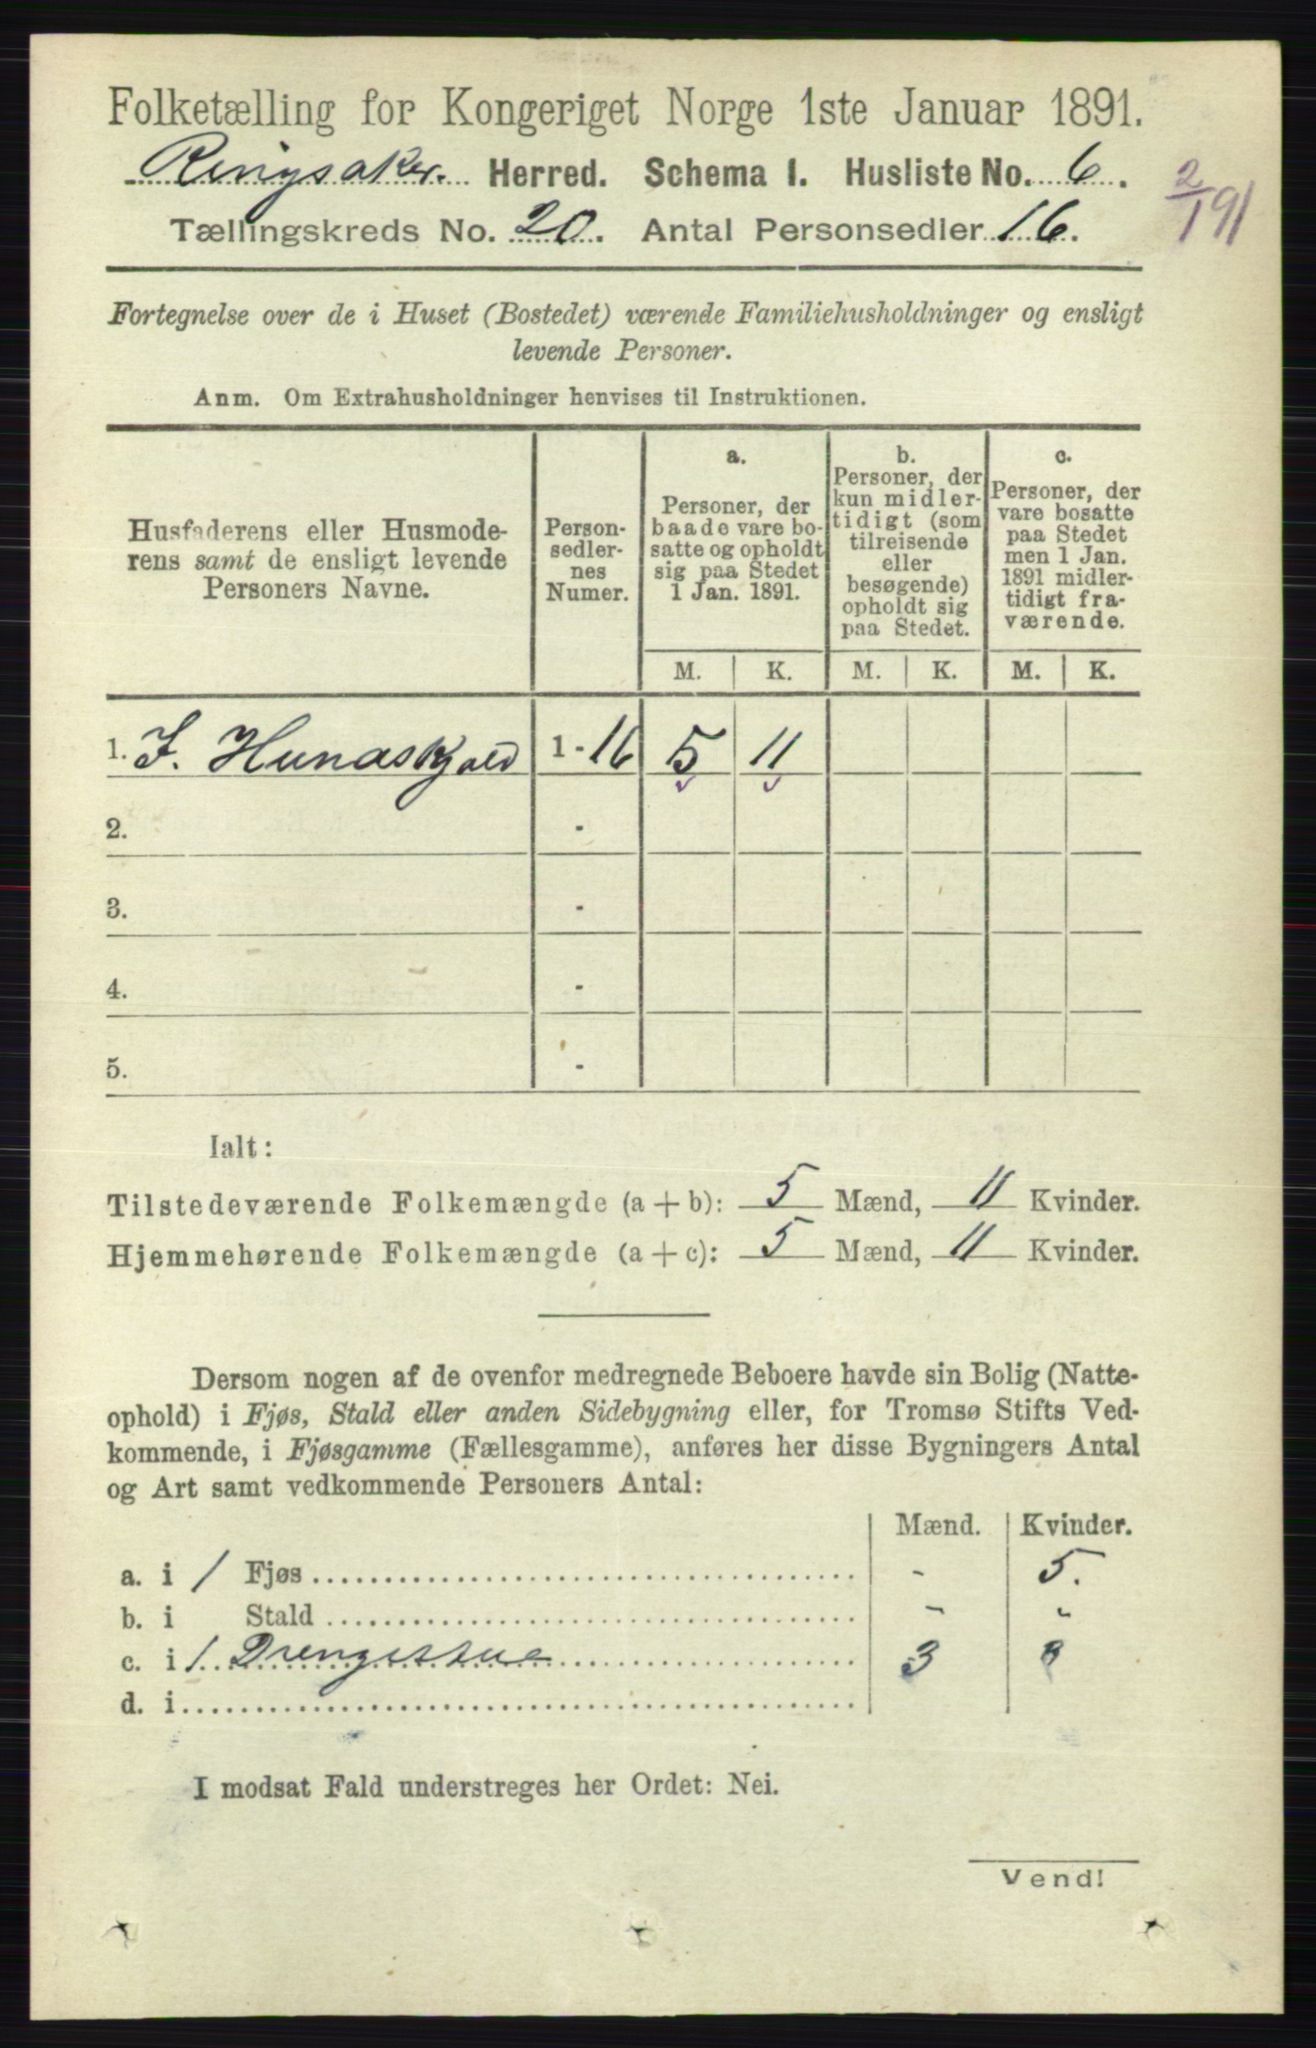 Folketælling for Kongeriget Norge 1ste Januar 1891.
Ringsaker. Herred. Schema I. Husliste No. 6.
2/1 91
Tællingskreds No. 20. Antal Personsedler 16.
Fortegnelse over de i Huset (Bostedet) værende Familiehusholdninger og ensligt
levende Personer.
Anm. Om Extrahusholdninger henvises til Instruktionen.
Husfaderens eller Husmode-
rens samt de ensligt levende
Personers Navne.
Person-
sedler-
nes
Numer.
a.
Personer, der
baade vare bo-
satte og opholdt
sig paa Stedet
1 Jan. 1891.
b.
Personer, der
kun midler-
tidigt (som
tilreisende
eller
besøgende)
opholdt sig
paa Stedet.
c.
Personer, der
vare bosatte
paa Stedet
men 1 Jan.
1891 midler-
tidigt fra-
værende.
M. K. M. K. M. K.
1. J. Hunaskjold 1 - 16 5 11
2. -
3. -
4. -
5. -
Ialt:
Tilstedeværende Folkemængde (a + b): 5 Mænd, 11 Kvinder.
Hjemmehørende Folkemængde (a + c): 5 Mænd, 11 Kvinder.
Dersom nogen af de ovenfor medregnede Beboere havde sin Bolig (Natte-
ophold) i Fjøs, Stald eller anden Sidebygning eller, for Tromsø Stifts Ved-
kommende, i Fjøsgamme (Fællesgamme), anføres her disse Bygningers Antal
og Art samt vedkommende Personers Antal:
Mænd. Kvinder.
a. i 1 Fjøs - 5.
b. i Stald - -
c. i 1. Drengestue 3
d. i
I modsat Fald understreges her Ordet: Nei.
Vend!